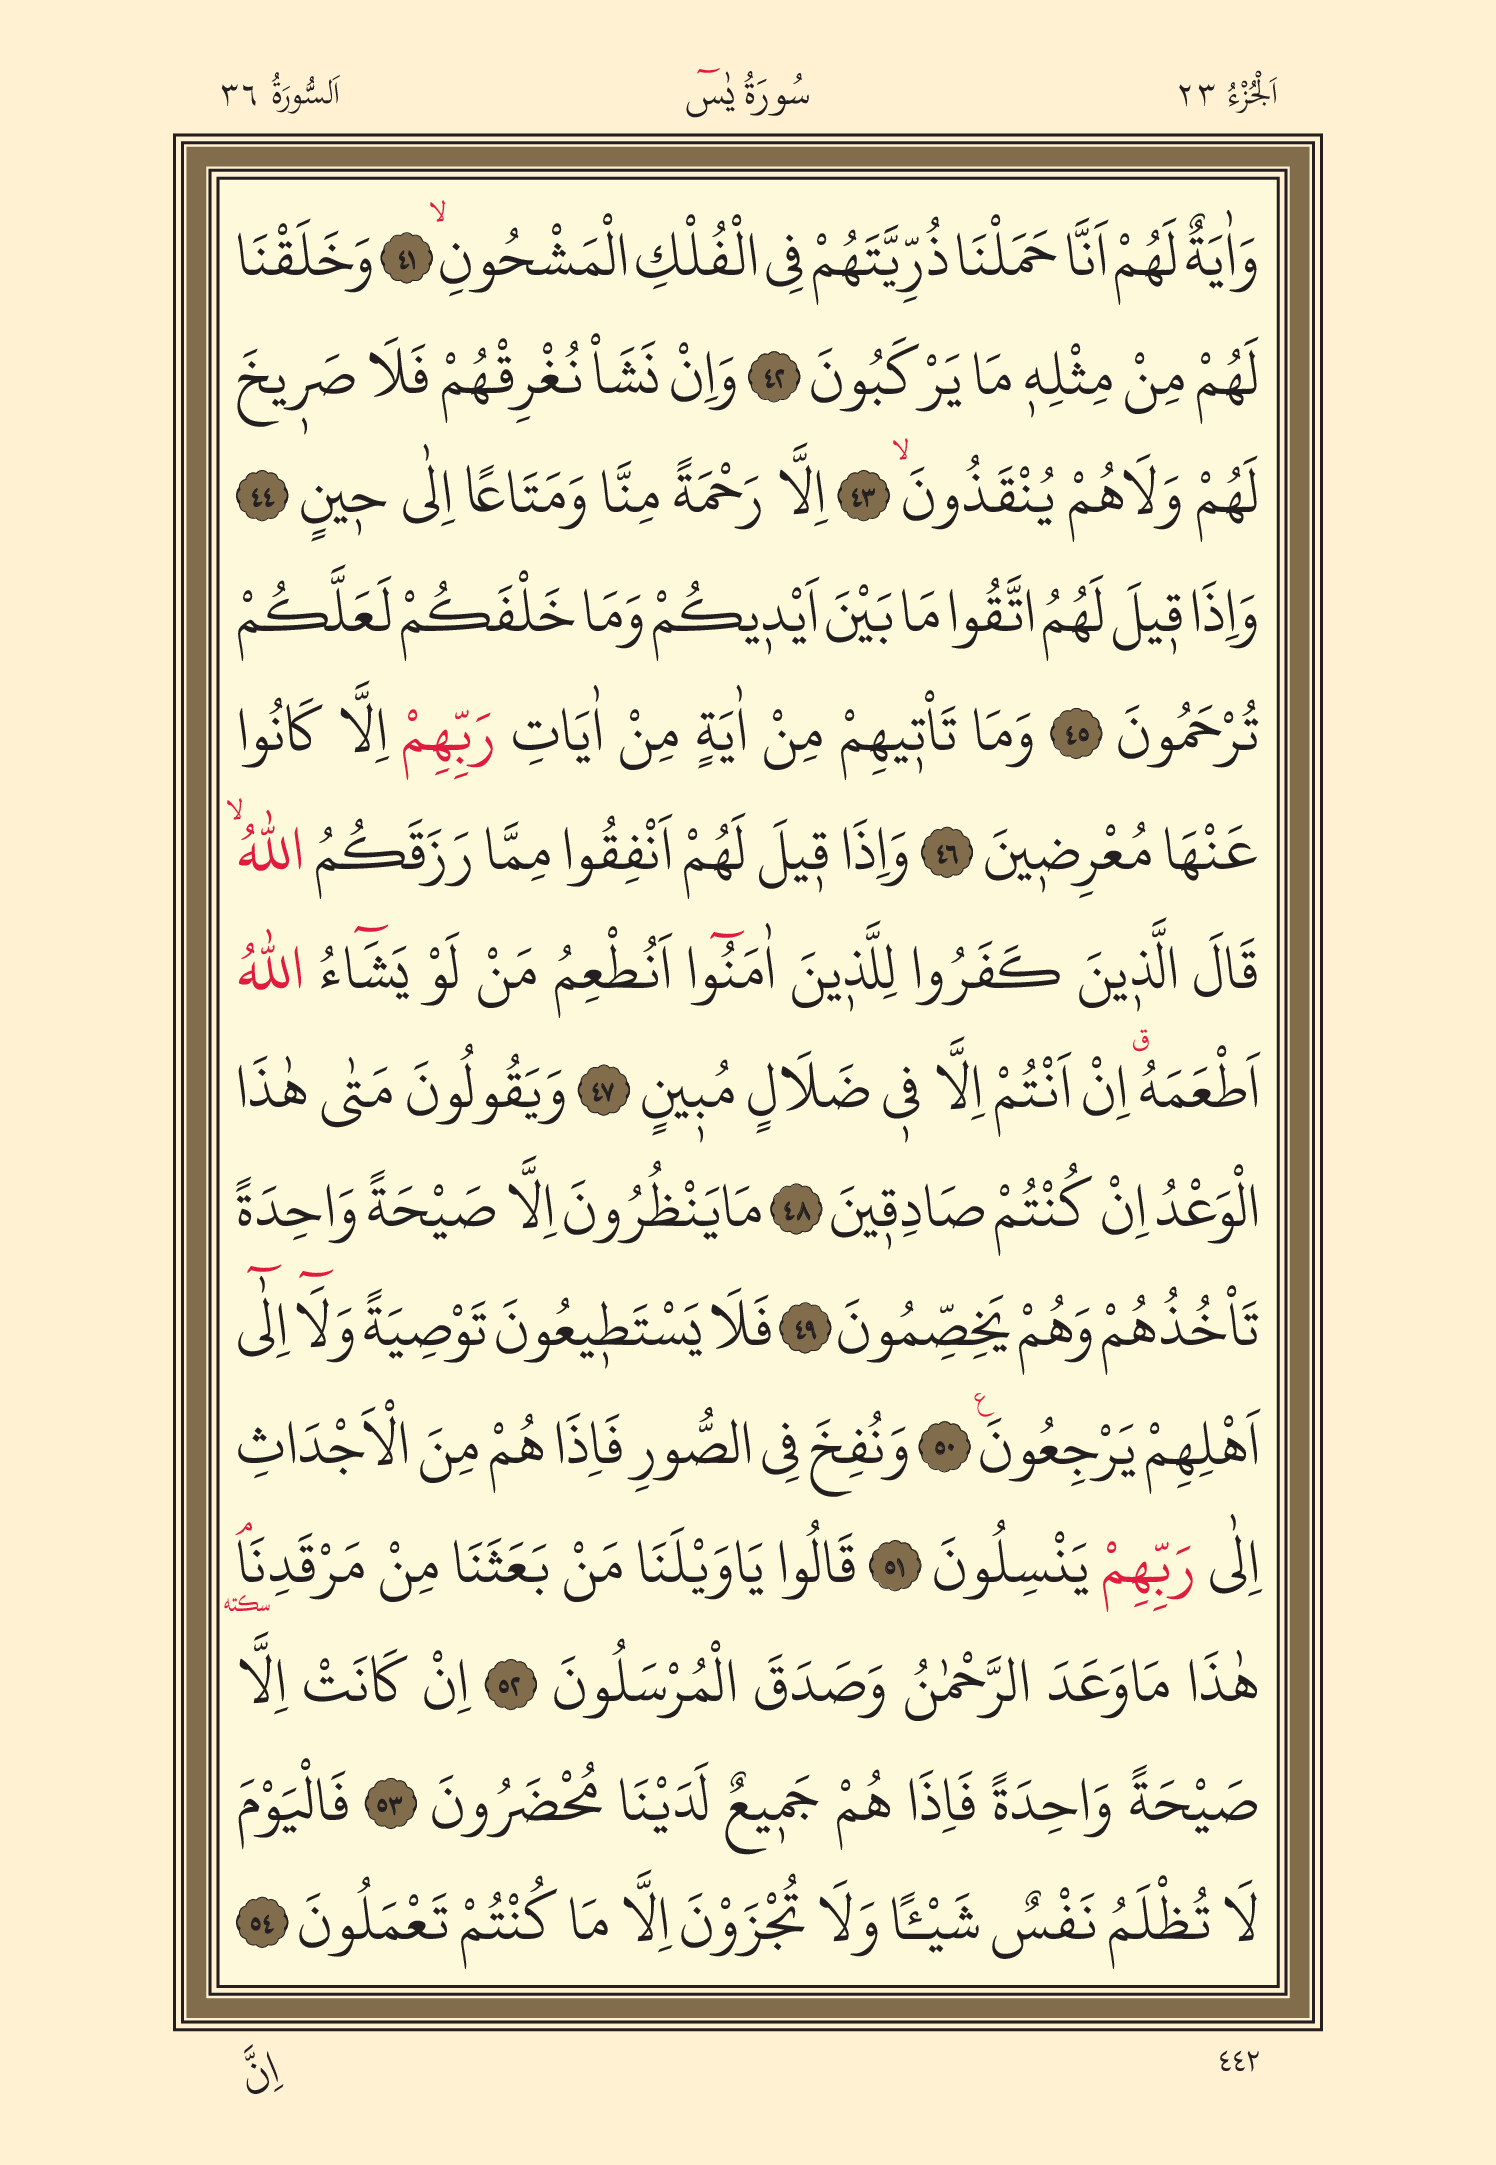 اَلْجُزْءُ ٢٣
سُورَةُ يٰسٓ
اَلسُّورَةُ ٣٦
وَاٰيَةٌ لَهُمْ اَنَّا حَمَلْنَا ذُرِّيَّتَهُمْ فِى الْفُلْكِ الْمَشْحُونِۙ ٤١ وَخَلَقْنَا
لَهُمْ مِنْ مِثْلِهٖ مَا يَرْكَبُونَ ٤٢ وَاِنْ نَشَاْ نُغْرِقْهُمْ فَلَا صَرٖيخَ
لَهُمْ وَلَاهُمْ يُنْقَذُونَۙ ٤٣ اِلَّا رَحْمَةً مِنَّا وَمَتَاعًا اِلٰى حٖينٍ ٤٤
وَاِذَا قٖيلَ لَهُمُ اتَّقُوا مَا بَيْنَ اَيْدٖيكُمْ وَمَا خَلْفَكُمْ لَعَلَّكُمْ
تُرْحَمُونَ ٤٥ وَمَا تَاْتٖيهِمْ مِنْ اٰيَةٍ مِنْ اٰيَاتِ رَبِّهِمْ اِلَّا كَانُوا
عَنْهَا مُعْرِضٖينَ ٤٦ وَاِذَا قٖيلَ لَهُمْ اَنْفِقُوا مِمَّا رَزَقَكُمُ اللّٰهُۙ
قَالَ الَّذٖينَ كَفَرُوا لِلَّذٖينَ اٰمَنُٓوا اَنُطْعِمُ مَنْ لَوْ يَشَٓاءُ اللّٰهُ
اَطْعَمَهُۗ اِنْ اَنْتُمْ اِلَّا فٖى ضَلَالٍ مُبٖينٍ ٤٧ وَيَقُولُونَ مَتٰى هٰذَا
الْوَعْدُ اِنْ كُنْتُمْ صَادِقٖينَ ٤٨ مَايَنْظُرُونَ اِلَّا صَيْحَةً وَاحِدَةً
تَاْخُذُهُمْ وَهُمْ يَخِصِّمُونَ ٤٩ فَلَا يَسْتَطٖيعُونَ تَوْصِيَةً وَلَٓا اِلٰٓى
اَهْلِهِمْ يَرْجِعُونَࣖ ٥٠ وَنُفِخَ فِى الصُّورِ فَاِذَا هُمْ مِنَ الْاَجْدَاثِ
اِلٰى رَبِّهِمْ يَنْسِلُونَ ٥١ قَالُوا يَاوَيْلَنَا مَنْ بَعَثَنَا مِنْ مَرْقَدِنَاۢ سكته
هٰذَا مَاوَعَدَ الرَّحْمٰنُ وَصَدَقَ الْمُرْسَلُونَ ٥٢ اِنْ كَانَتْ اِلَّا
صَيْحَةً وَاحِدَةً فَاِذَا هُمْ جَمٖيعٌ لَدَيْنَا مُحْضَرُونَ ٥٣ فَالْيَوْمَ
لَا تُظْلَمُ نَفْسٌ شَيْـًٔا وَلَا تُجْزَوْنَ اِلَّا مَا كُنْتُمْ تَعْمَلُونَ ٥٤
٤٤٢
اِنَّ